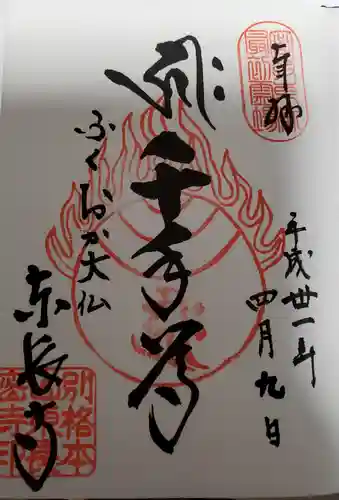 奉拝
平成丗一年
四月九日
千手尊
ふくおか大仏
東長寺
別格本山東長密寺印